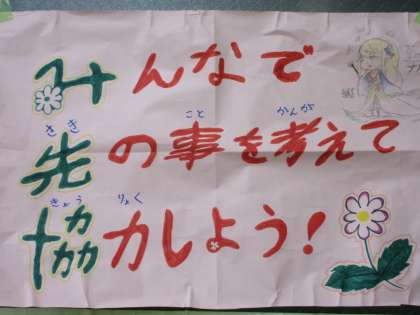 みんなで
さき こと かんが
先の事を考えて
きょう りょく
協力しよう！